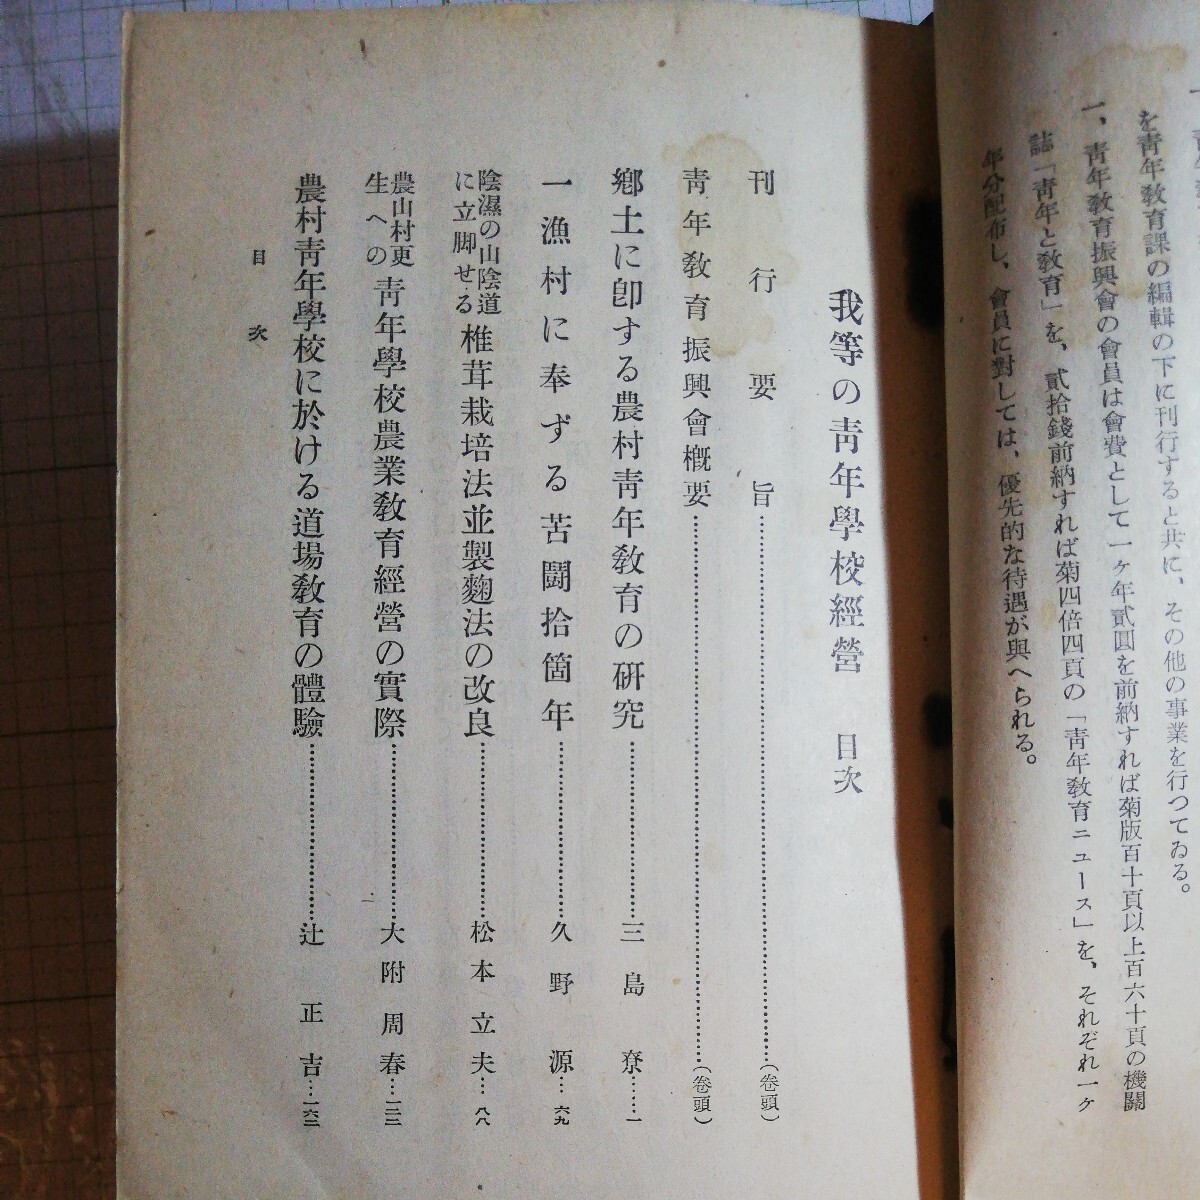 を靑年敎育課の編輯の下に刊行すると共に、その他の事業を行つてゐる。
一、靑年敎育振興會の會員は會費として一ヶ年貳圓を前納すれば菊版百十頁以上百六十頁の機關
誌「靑年と敎育」を、貳拾錢前納すれば菊四倍四頁の「靑年敎育ニュース」を、それぞれ一ヶ
年分配布し、會員に對しては、優先的な待遇が與へられる。
我等の靑年學校經營 目次
刊行要旨…………(卷頭)
靑年敎育振興會槪要…………(卷頭)
鄕土に卽する農村靑年敎育の硏究…………三島 寮……一
一漁村に奉ずる苦鬪拾箇年…………久野 源…六九
陰濕の山陰道に立脚せる椎茸栽培法並製麴法の改良…………松本立夫…八八
農山村更生への靑年學校農業敎育經營の實際…………大附周春…一三三
農村靑年學校に於ける道場敎育の體驗…………辻 正吉…一六三
目次